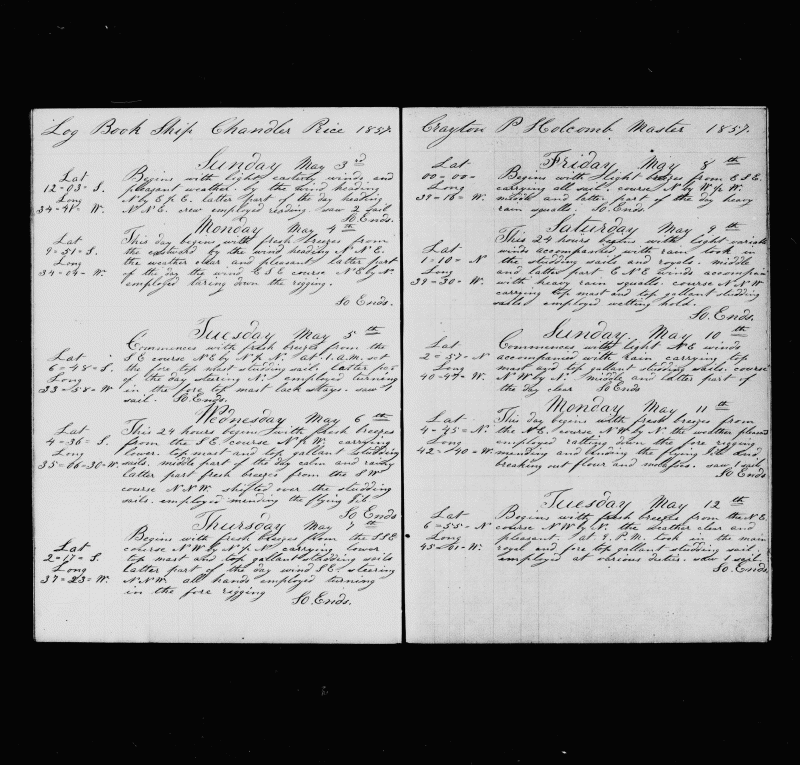 Log Book Ship Chandler Price 1857.
Sunday May 3rd
Lat
12=03= S.
Long
34=41= W.
Begins with light easterly winds and
pleasant weather. by the wind heading
N by E ½ E. latter part of the day heading
N.N.E. crew employed reading. saw 2 sail
So Ends.
Monday May 4th
Lat
9=51= S.
Long
34=04= W.
This day begins with fresh breezes from
the eastward by the wind heading N.N.E.
the weather clear and pleasant latter part
of the day the wind E.S.E course N.E by N.
employed taring down the rigging.
So Ends.
Tuesday May 5th
Lat
6=48= S.
Long
33=58= W.
Commences with fresh breezes from the
S.E course N.E by N ½ N. at 1. a.m. set
the fore top mast studding sail. latter part
of the day steering N. employed turning
in the fore top mast back stays. saw 1
sail. So Ends.
Wednesday May 6th
Lat
4=36= S.
Long
35=06=30= W.
This 24 hours begins with fresh breezes
from the S.E. course N ½ W. carrying
lower, top mast and top gallant studding
sails. middle part of the day calm and rainy
latter part fresh breezes from the S.W
course N.N.W. shifted over the studding
sails. employed mending the flying jib.
So Ends
Thursday May 7th
Lat
2=17= S.
Long
37=23= W.
Begins with fresh breezes from the S.S.E
course N.W by N ½ N. carrying lower
top mast and top gallant studding sails
latter part of the day wind S.E. steering
N.N.W. all hands employed turning
in the fore rigging
So. Ends.
Crayton P Holcomb Master 1857.
Friday May 8th
Lat
00=00=
Long
39=18= W.
Begins with slight breezes from E.S.E.
carrying all sail. course N by W ½ W.
middle and latter part of the day heavy
rain squalls. So Ends.
Saturday May 9th
Lat
1=10= N
Long
39=30= W.
This 24 hours begins with light variable
winds accompanied with rain took in
the studding sails and royals. middle
and latter part E.N.E winds accompan
with heavy rain squalls. course N.N.W
carrying top mast and top gallant studding
sails employed wetting hold.
So. Ends.
Sunday May 10th
Lat
2=57= N
Long
40=47= W.
Commences with light N.E winds
accompanied with rain carrying top
mast and top gallant studding sails. course
N.W by N. middle and latter part of
the day clear So Ends
Monday May 11th
Lat
4=45= N.
Long
42=40= W.
This day begins with fresh breezes from
the N.E. course N.W by N. the weather pleasant
employed ratling down the fore rigging
mending and bending the flying jib. and
breaking out flour and molasses. saw 1 sail
So Ends
Tuesday May 12th
Lat
6=55= N
Long
45=01= W.
Begins with fresh breezes from the N.E.
course N.W by N. the weather clear and
pleasant. at 9. P.M. took in the main
royal and fore top gallant studding sail.
employed at various duties. saw 1 sail
So. Ends.